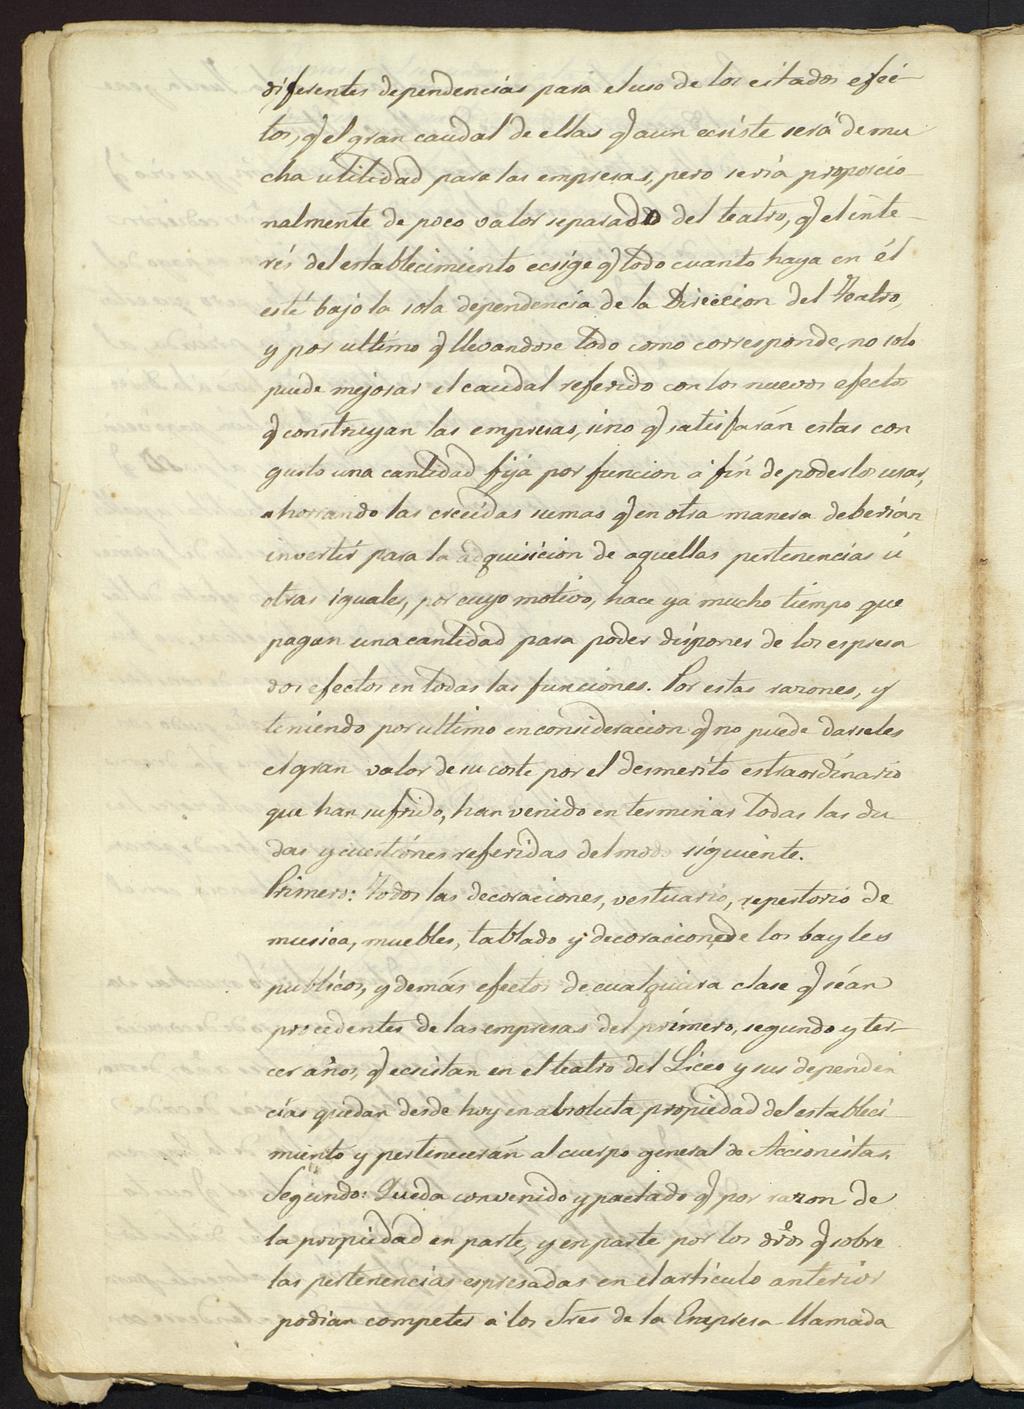 diferentes dependencias para el uso de los citados efec-
tos, q̃ el gran caudal de ellas q̃ aun ecsiste será de mu
cha utilidad para las empresas, pero sería proporcio
nalmente de poco valor separado del teatro, q̃ el inte-
rés del establecimiento ecsige q̃ todo cuanto haya en él
esté bajo la sola dependencia de la Direccion del Teatro,
y por ultimo q̃ llevandose todo como corresponde, no solo
puede mejorar el caudal referido con los nuevos efectos
q̃ construyan las empresas, sino q̃ satisfarán estas con
gusto una cantidad fija por funcion á fin de poderlos usar,
ahorrando las crecidas sumas q̃ en otra manera deberían
invertir para la adquisicion de aquellas pertenencias ú
otras iguales, por cuyo motivo, hace ya mucho tiempo que
pagan una cantidad para poder disponer de los espresa
dos efectos en todas las funciones. Por estas razones, y
teniendo por ultimo en consideracion q̃ no puede darseles
el gran valor de su coste por el desmerito estraordinario
que han sufrido, han venido en terminar todas las du
das y cuestiones referidas del modo siguiente.
Primero: Todos las decoraciones, vestuario, repertorio de
musica, muebles, tablado y decoraciones de los bayles
publicos, y demás efectos de cualquiera clase q̃ séan
procedentes de las empresas del primero, segundo y ter-
cer años, q̃ ecsistan en el teatro del Liceo y sus dependen
cias quedan desde hoy en absoluta propiedad del estableci
miento y pertenecerán al cuerpo general de Accionistas.
Segundo: Queda convenido y pactado q̃ por razon de
la propiedad en parte, y en parte por los dr̃os q̃ sobre
las pertenencias espresadas en el articulo anterior
podian competer á los Sres de la Empresa llamada